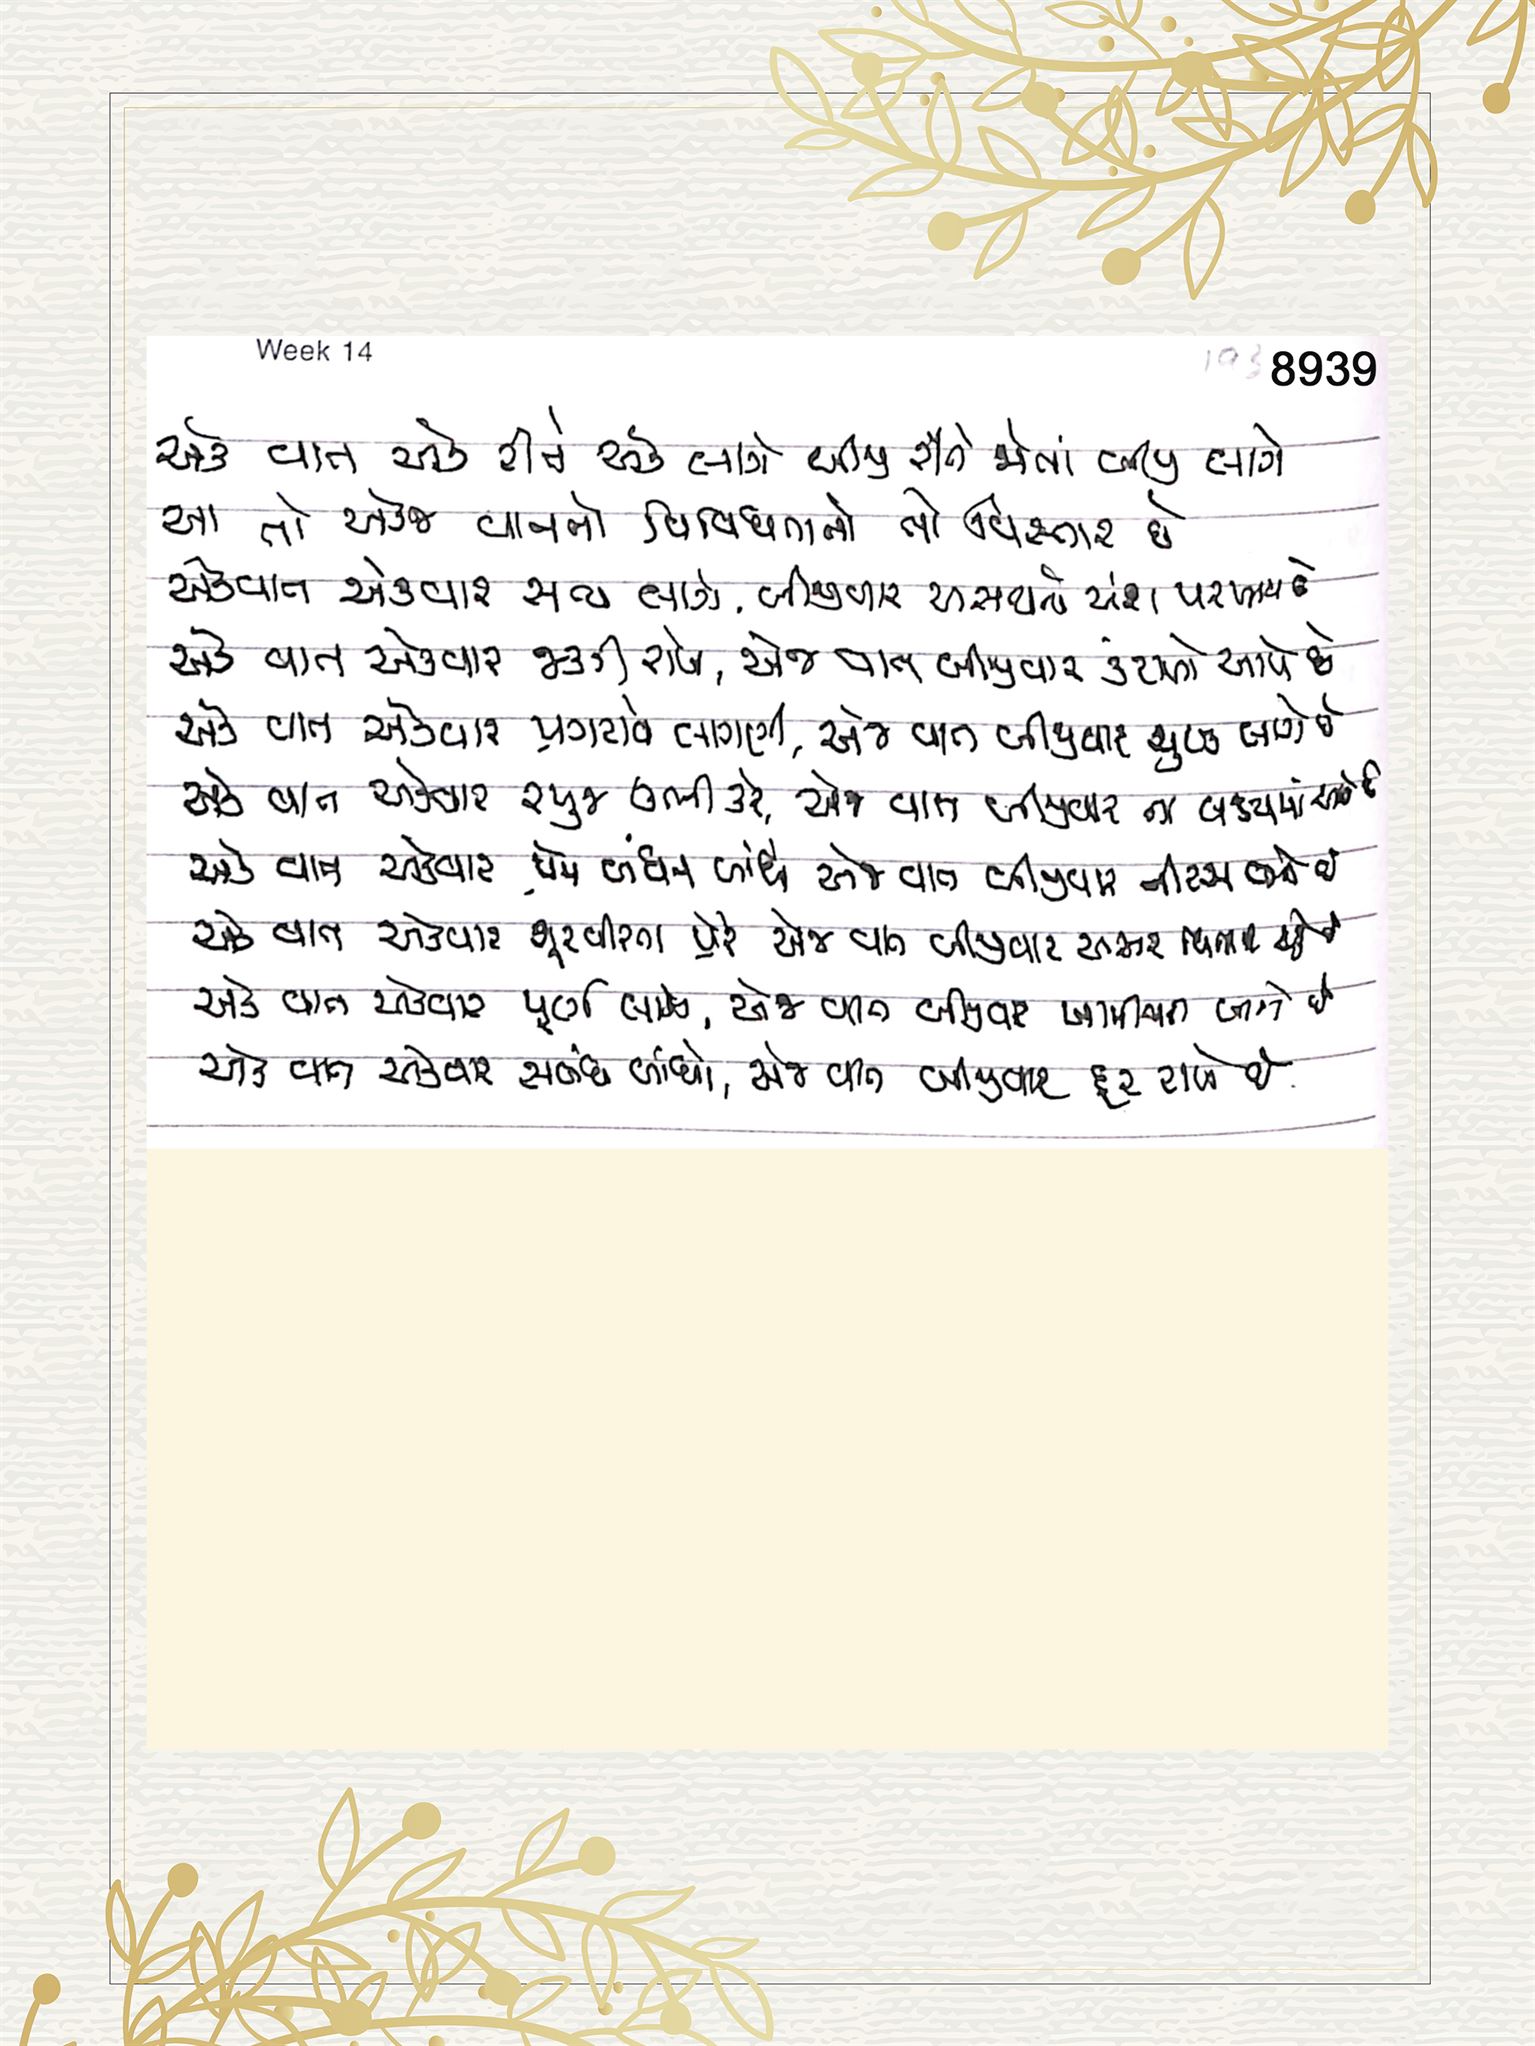 Week 14
8939
એક વાત એક રીતે એક લાગે બીજી રીતે જોતાં બીજી લાગે
આ તો એકજ વાતની વિવિધતાનો તો વિસ્તાર છે
એકવાત એકવાર સત્ય લાગે, બીજીવાર અસત્યનો અંશ પરખાય છે
એક વાત એકવાર જકડી રાખે, એજ વાત બીજીવાર કંટાળો આપે છે
એક વાત એકવાર પ્રગટાવે લાગણી, એજ વાત બીજીવાર શુષ્ક લાગે છે
એક વાત એકવાર રમુજ ઊભી કરે, એજ વાત બીજીવાર ના
એક વાત એકવાર પ્રેમ બંધન બાંધે એજ વાત બીજીવાર નીરસ બને છે
એક વાત એકવાર શૂરવીરતા પ્રેરે એજ વાત બીજીવાર અસર
એક વાત એકવાર પૂર્ણ લાગે, એજ વાત બીજીવાર ખામીયત બને છે
એક વાત એકવાર સબંધ બાંધે, એજ વાત બીજીવાર દૂર રાખે છે.